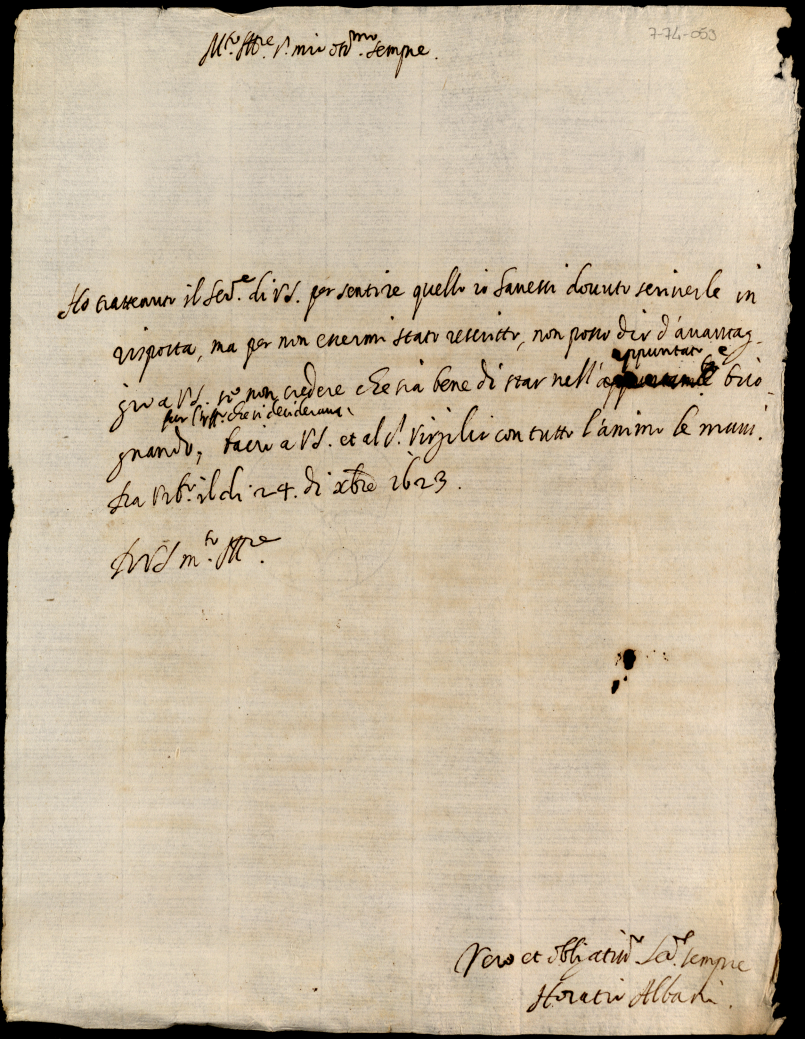 7-74-053
M.to Ill.re S.r mio oss.mo sempre.
Ho trattenuto il Ser.re di VS. per sentire quello io havessi dovuto scriverle in
risposta, ma per non essermi stato rescritto, non posso dir d'avantag-
gio a VS. se non credere che sia bene di star nell'appuntato, e biso-
gnando, far l'uff.o che si desiderava, bacio a VS. et al S.r Virgilio con tutto l'animo le mani.
Da Urb.o il di 24. di xbre 1623.
Di VS m.to Ill.re
Vero et obligatiss.o Ser.re sempre
Horatio Albani.